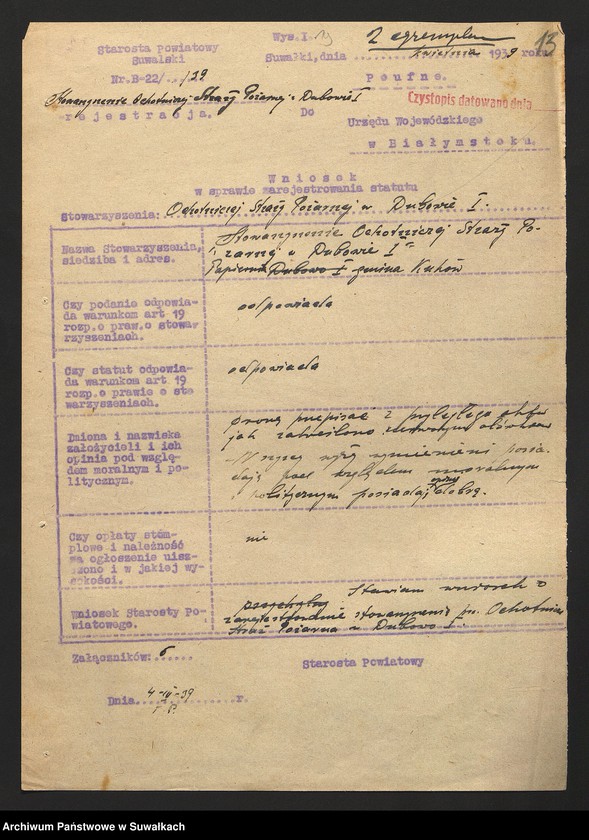 13
Wys.I.
2 egzemplarze
Starosta Powiatowy
Suwalski
Suwałki, dnia kwietnia 1939 roku
Nr.B-22/../39
Poufne.
Stowarzyszenie Ochotniczej Straży Pożarnej w Dubowie I
Czystopis datowano dnia
rejestracja.
Do
Urzędu Wojewódzkiego
w Białymstoku.
Wniosek
w sprawie zarejestrowania statutu
Stowarzyszenia: Ochotniczej Straży Pożarnej w Dubowie I.
Nazwa Stowarzyszenia,
siedziba i adres.
Stowarzyszenie Ochotniczej Straży Po-
żarnej w Dubowie I"
Dubowo I gmina Kuków
Czy podanie odpowia-
da warunkom art 19
rozp.o praw.o stowar
rzyszeniach.
odpowiada
Czy statut odpowia-
da warunkom art 19
rozp.o prawie o sto
warzyszeniach.
odpowiada
Imiona i nazwiska
założycieli i ich
opinia pod wzglę-
dem moralnym i po-
litycznym.
proszę przepisać z
jak zakreślono ołówkiem
wyżej wymienieni posia-
dają pod względem moralnym
i politycznym posiadają opinię dobrą.
Czy opłaty stem-
plowe i należność
za ogłoszenie uisz-
czono i w jakiej wy-
sokości.
nie
Wniosek Starosty Po-
wiatowego.
Stawiam wniosek o
zarejestrowanie stowarzyszenia pn. Ochotnicza
Straż Pożarna w Dubowo I.
Załączników: 6
Starosta Powiatowy
Dnia 4-IV-39 r.
Archiwum Państwowe w Suwałkach